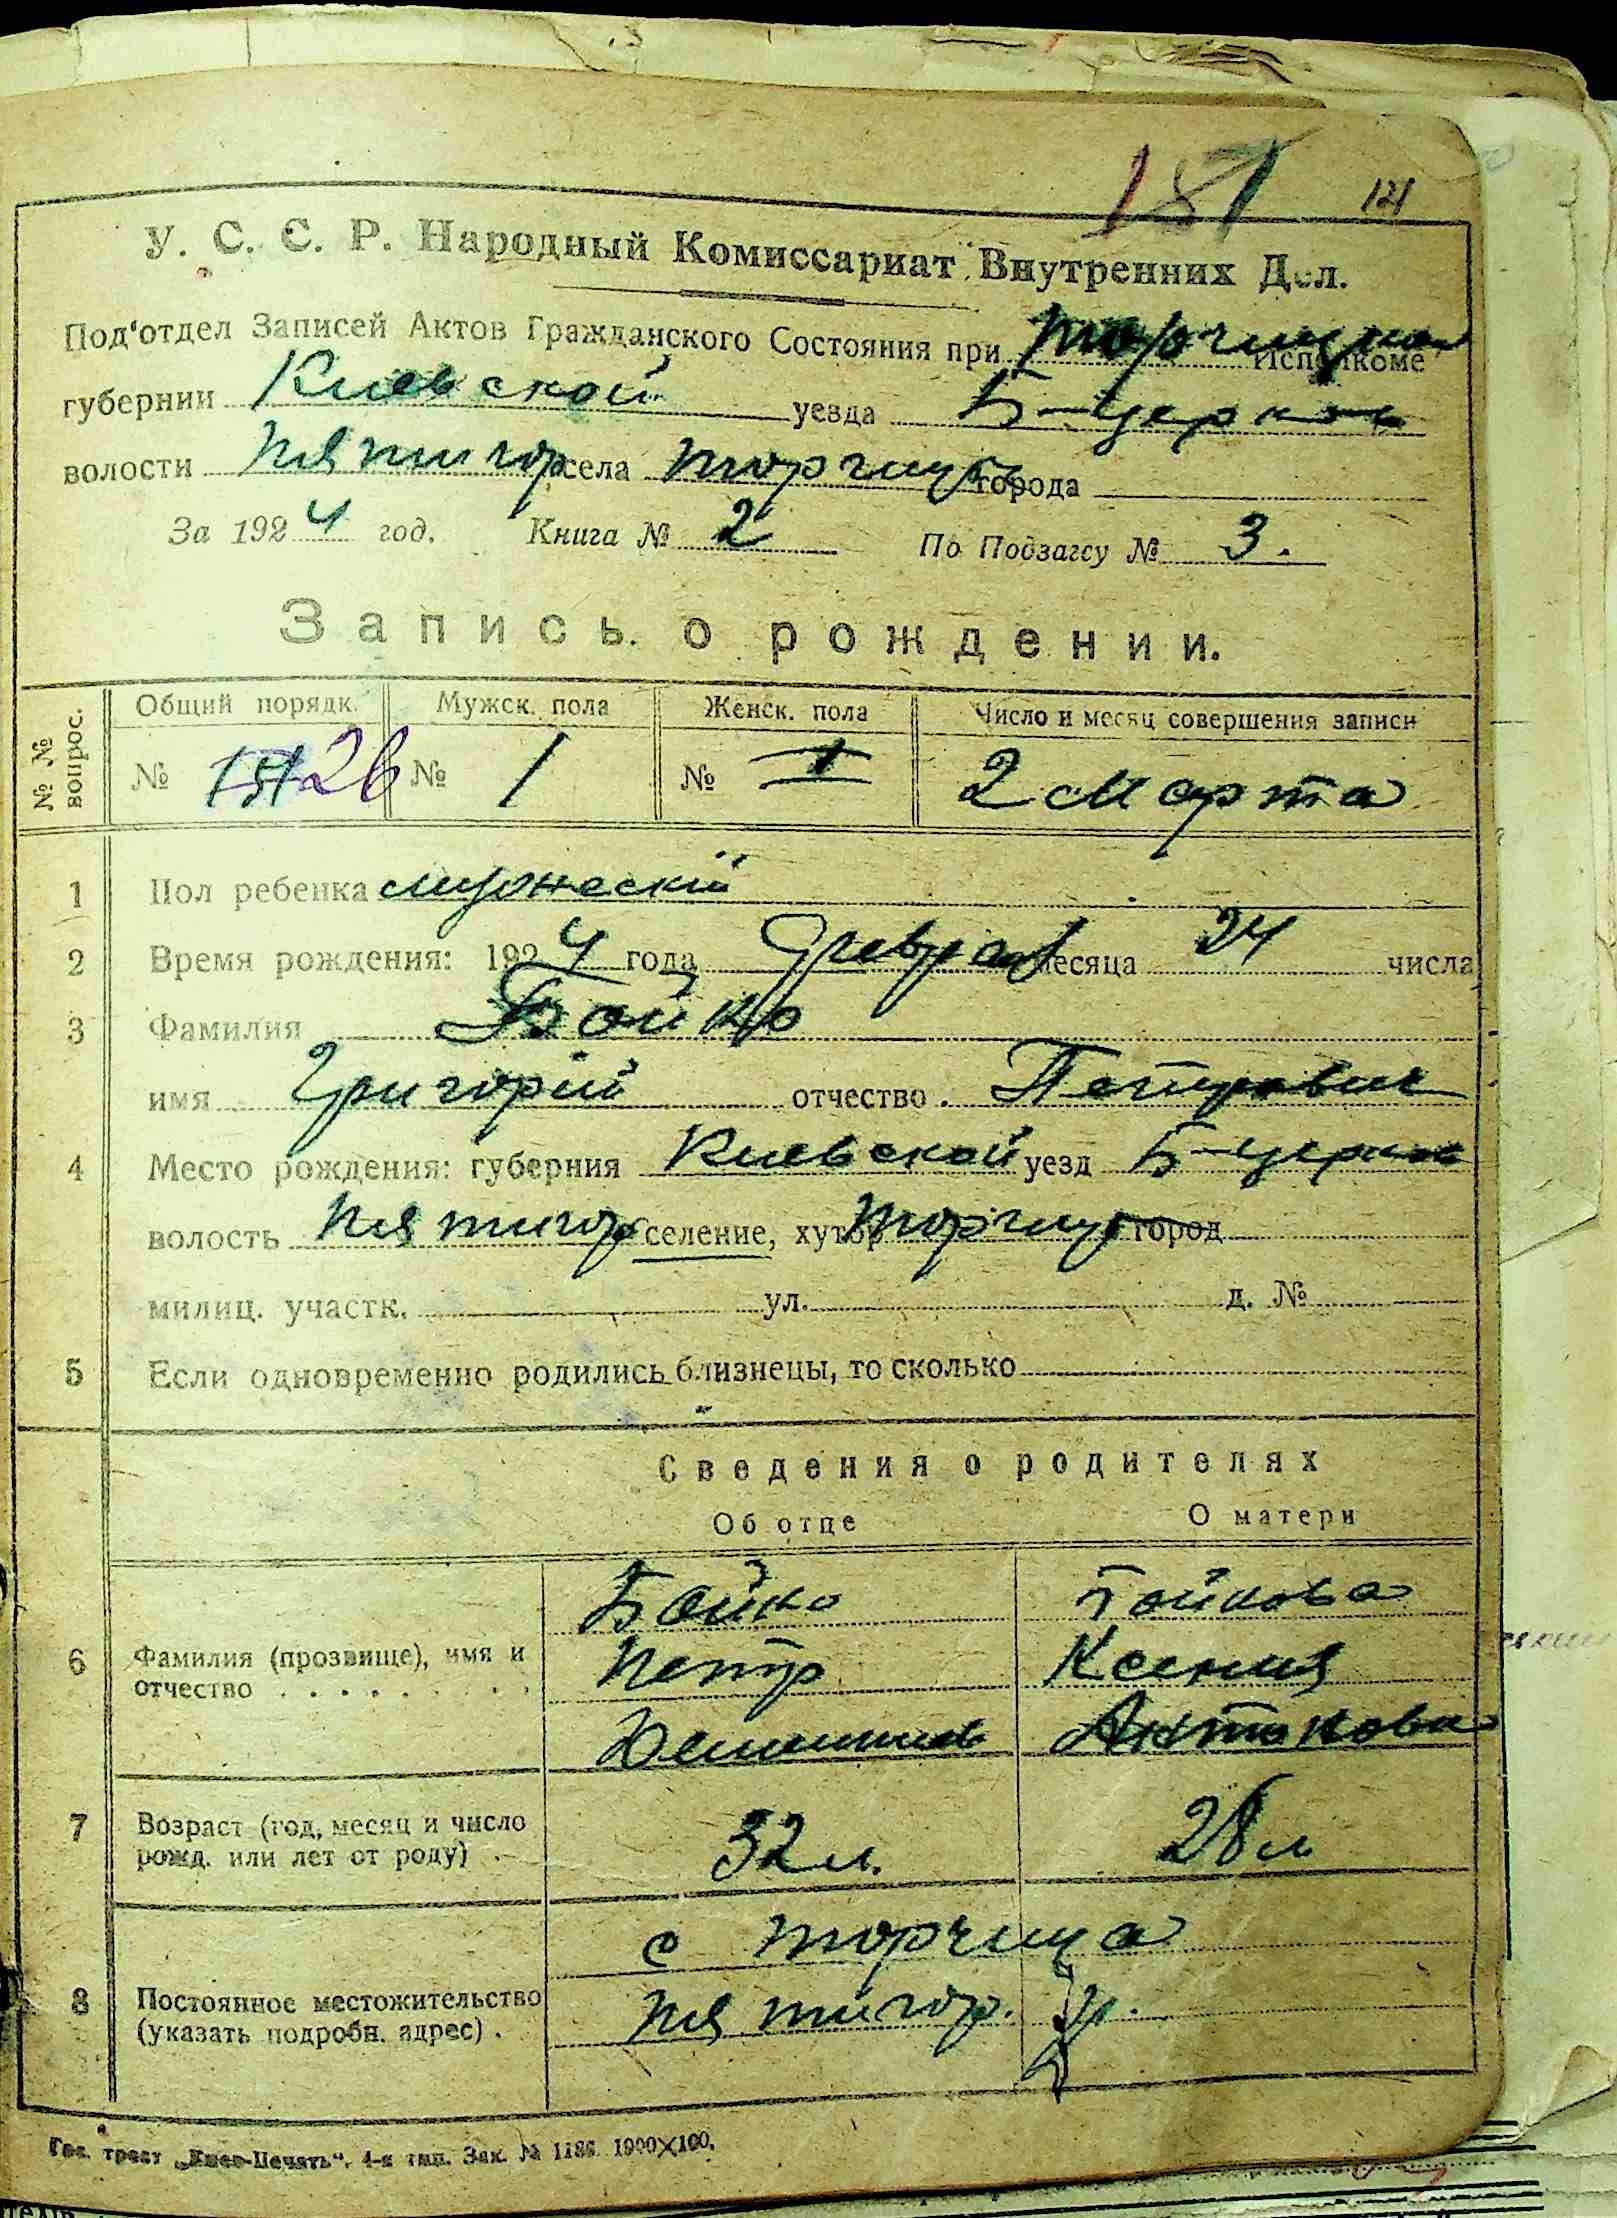 181 121
У. С. С. Р. Народный Комиссариат Внутренних Дел.
Под'отдел Записей Актов Гражданского Состояния при Исполкоме
губернии Киевской уезда Б-церков
волости Пятигор села Торчиця города
За 1924 год. Книга № 2 По Подзагсу № 3.
Запись о рождении.
№ № вопрос. Общий порядк. Мужск. пола Женск. пола Число и месяц совершения записи
№ 26 № 1 № 2 Марта
1 Пол ребенка мужескій
2 Время рождения: 1924 года Февраля месяца 24 числа
3 Фамилия Бойко
имя Григорій отчество Петрович
4 Место рождения: губерния Киевской уезд Б-церков
волость Пятигор селение, хутор город
милиц. участк. ул. д. №
5 Если одновременно родились близнецы, то сколько
Сведения о родителях
Об отце О матери
Бойко Бойкова
6 Фамилия (прозвище), имя и отчество Петр Ксения
Антонова
7 Возраст (год, месяц и число рожд. или лет от роду) 32 л. 28 л
с Торчица
8 Постоянное местожительство (указать подробн. адрес) Пятигор. р.
Гос. трест „Киев-Печать", 4-я тип. Зак. № 1186 1000×100.